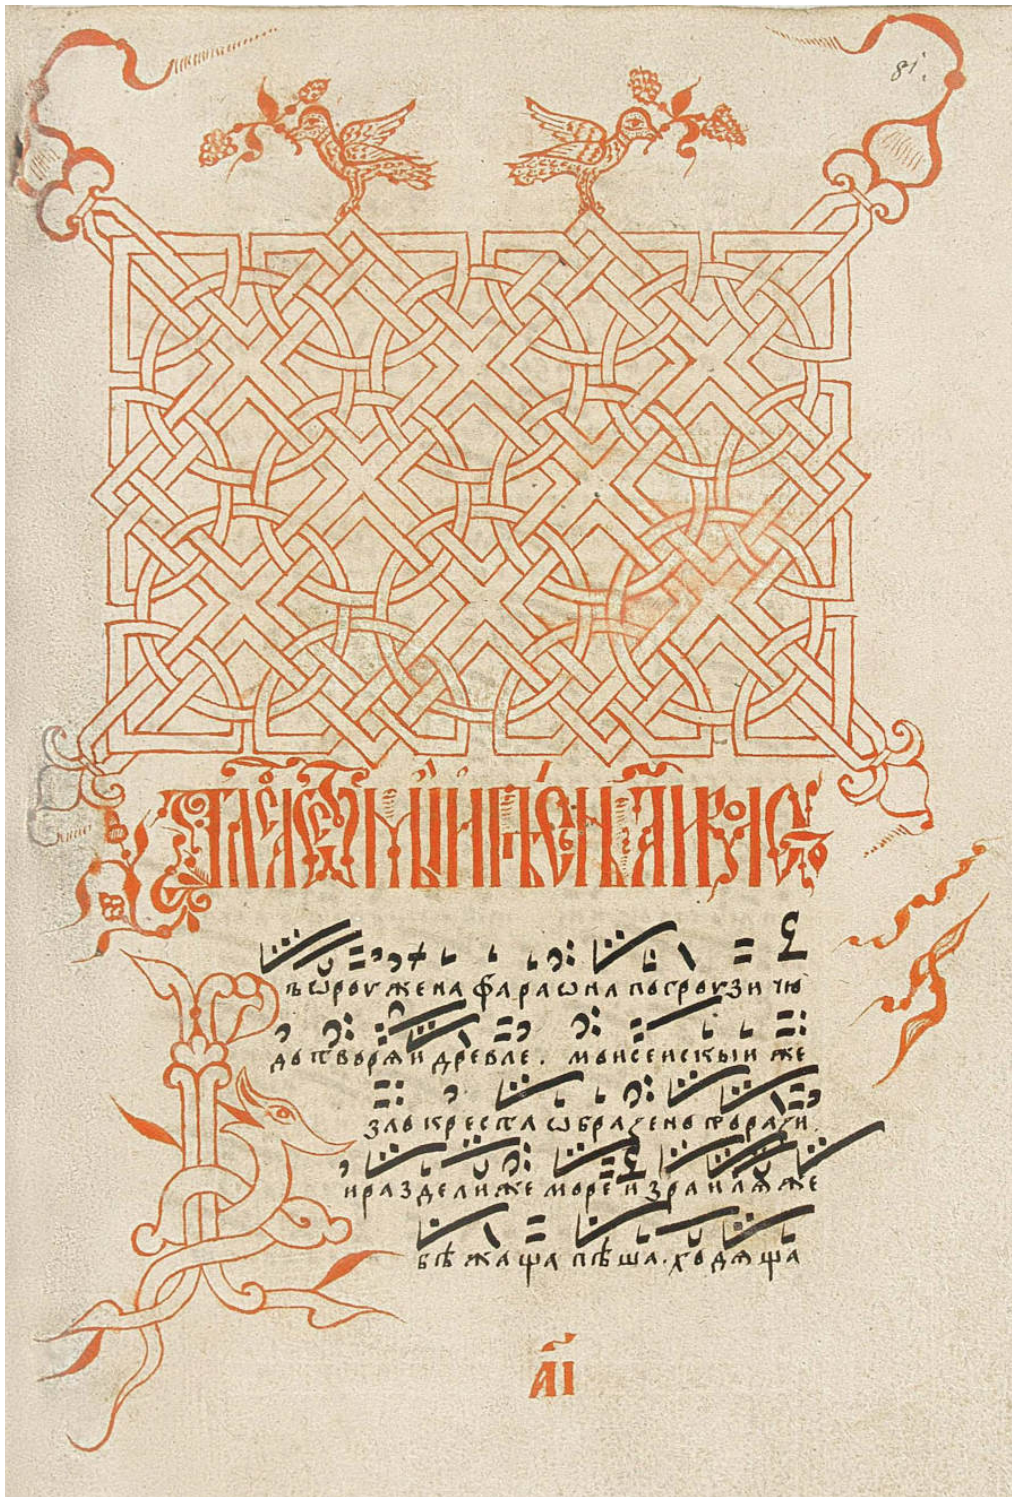 81.
гласъ осмыи пѣснь а҃ ирмос
Въѡроужена фараѡна погроузи чю
дотворѧи древле. моисеискыи же
зло крестаѡбразено порази.
и разделиже море израилѧ же
бѣжаща пѣша. ходѧща
а҃і